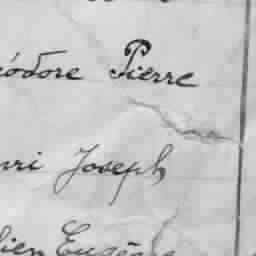 éodore Pierre
nri Joseph
lien Eugène